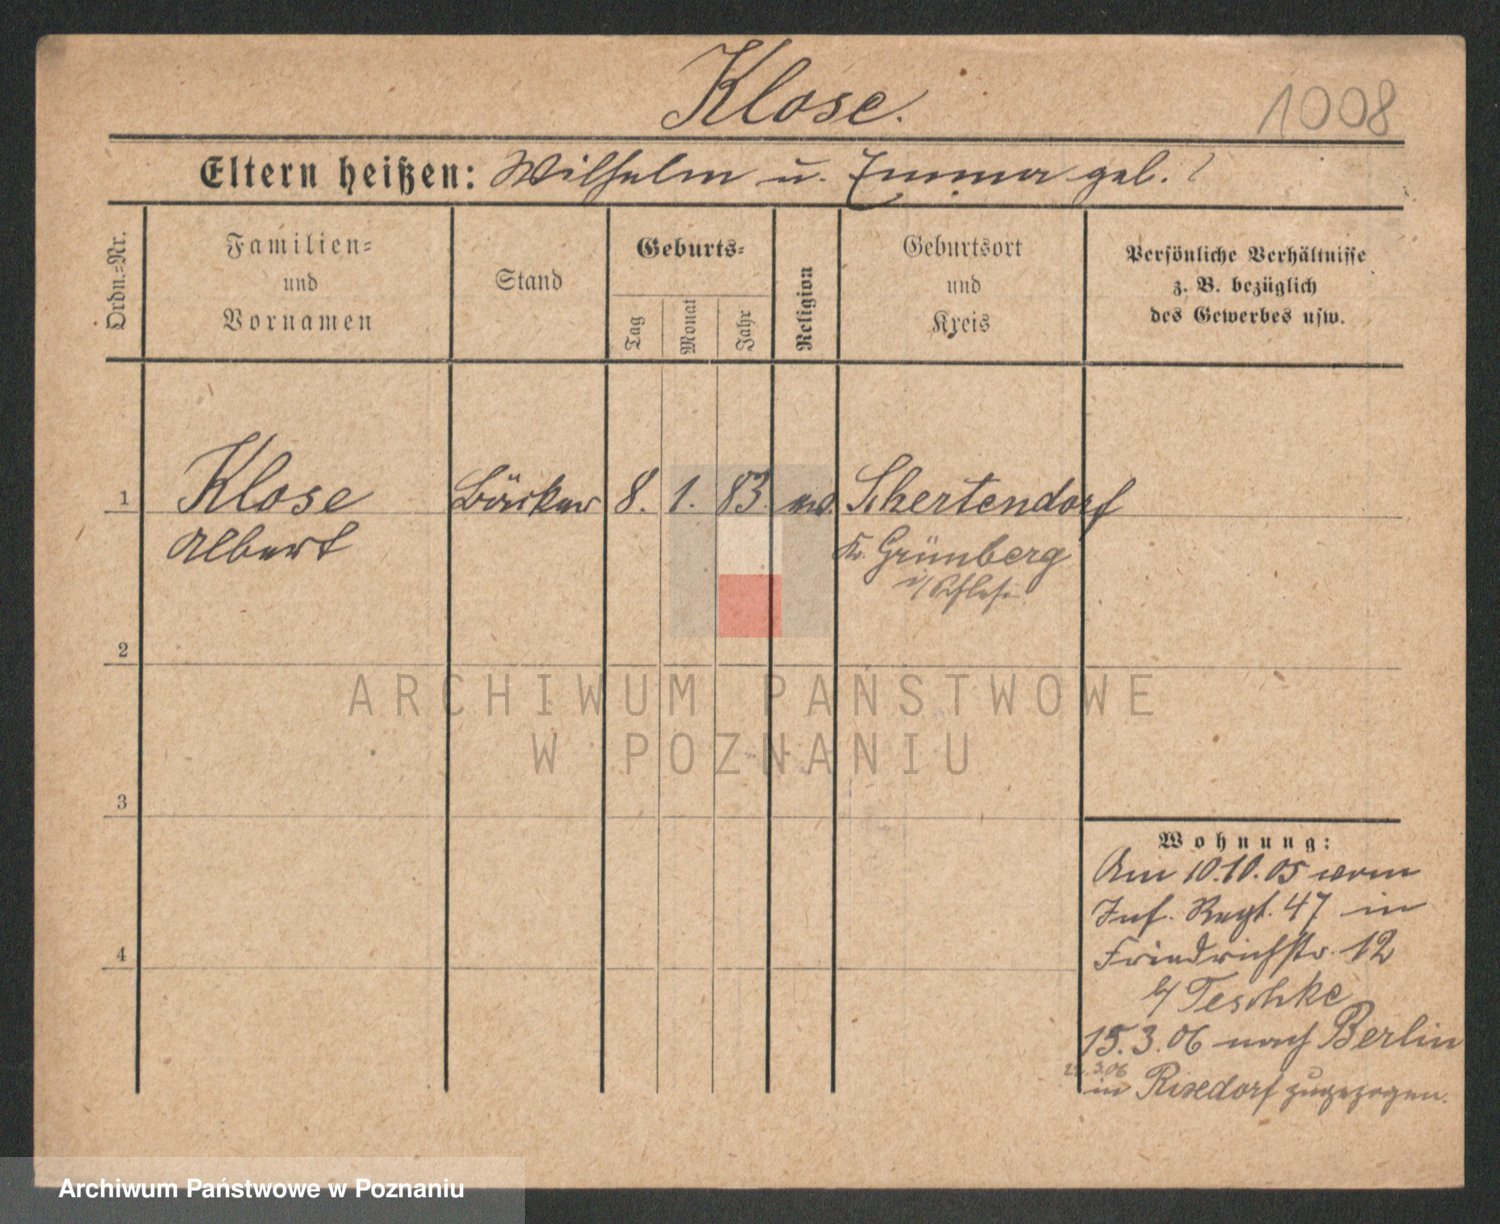 Klose.
1008
Eltern heißen: Wilhelm u. Emma geb. ?
Ordn.=Nr.
Familien=
und
Vornamen
Stand
Geburts=
Tag
Monat
Jahr
Religion
Geburtsort
und
Kreis
Persönliche Verhältnisse
z. B. bezüglich
des Gewerbes usw.
1
Klose Bäcker 8. 1. 83. ev. Schertendorf
Albert
Kr. Grünberg
i/ Schles.
2
ARCHIWUM PAŃSTWOWE
W POZNANIU
3
4
Wohnung:
Am 10.10.05 vom
Inf. Regt. 47 in
Friedrichstr. 12
b/ Teschke
15.3.06 nach Berlin
3.06
in Rixdorf zugezogen.
Archiwum Państwowe w Poznaniu